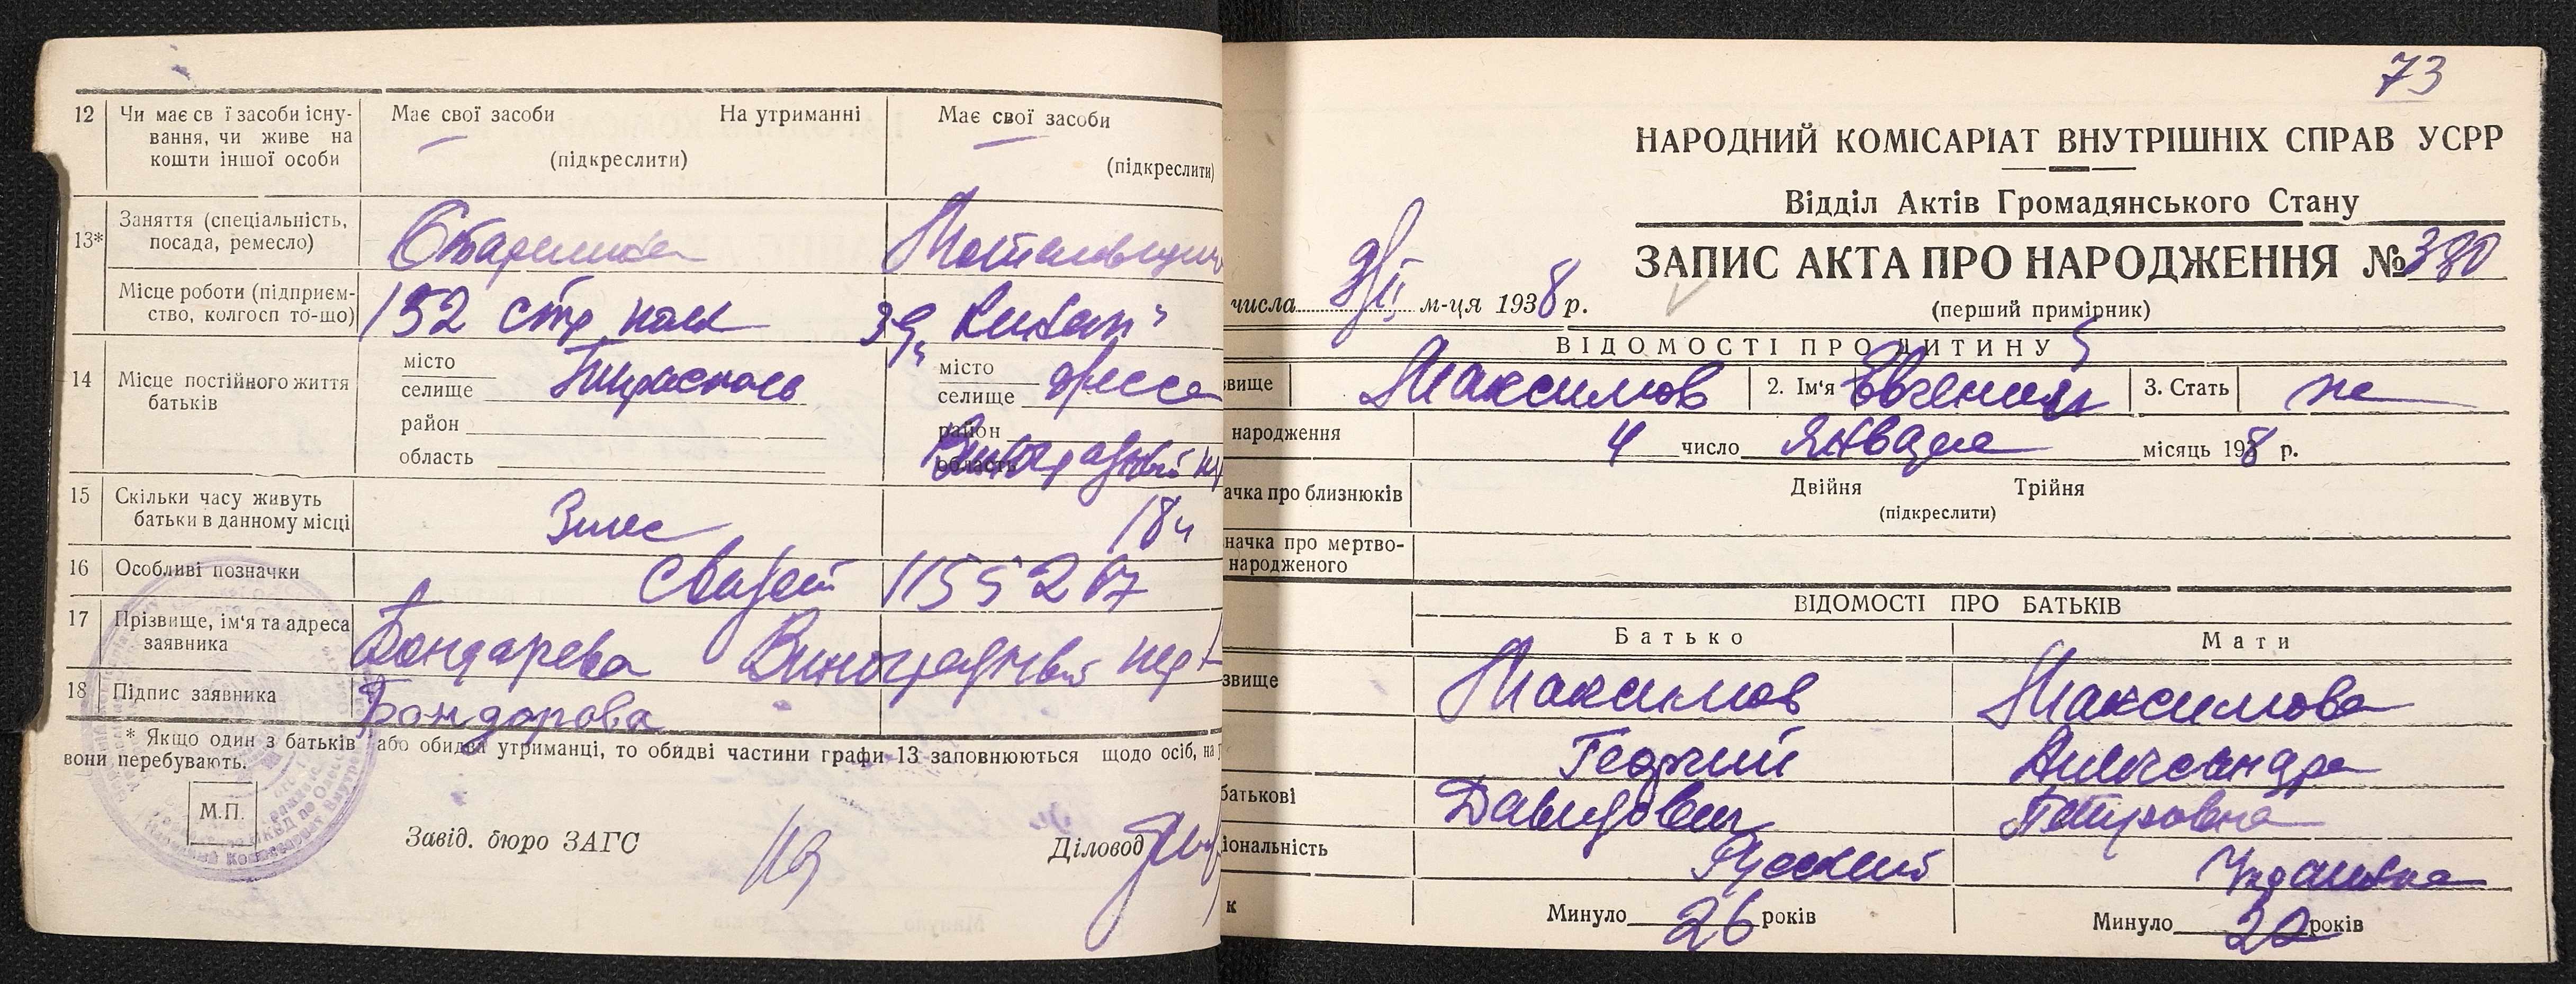 12 Чи має св ї засоби існу-
вання, чи живе на
кошти іншої особи
Має свої засоби На утриманні
(підкреслити)
Має свої засоби
(підкреслити)
13* Заняття (спеціальність,
посада, ремесло)
Місце роботи (підприєм-
ство, колгосп то-що)
152 стр полк
14 Місце постійного життя
батьків
місто
селище Тирасполь
район
область
місто
селище Одесса
район
область
15 Скільки часу живуть
батьки в данному місці
18
16 Особливі позначки
115527
17 Прізвище, ім'я та адреса
заявника
Бондарева
18 Підпис заявника
Бондорова
* Якщо один з батьків або обидва утриманці, то обидві частини графи 13 заповнюються щодо осіб, на
вони перебувають.
М.П.
Завід. бюро ЗАГС
Діловод
73
НАРОДНИЙ КОМІСАРІАТ ВНУТРІШНІХ СПРАВ УСРР
Відділ Актів Громадянського Стану
ЗАПИС АКТА ПРО НАРОДЖЕННЯ № 380
(перший примірник)
числа м-ця 1938 р.
ВІДОМОСТІ ПРО ДИТИНУ
звище Максимов 2. Ім'я Евгений 3. Стать
народження 4 число Января місяць 1938 р.
ачка про близнюків Двійня Трійня
(підкреслити)
начка про мертво-
народженого
ВІДОМОСТІ ПРО БАТЬКІВ
Батько Мати
звище Максимов Максимова
Георгий Александра
батькові Давидович Петровна
іональність Русский Украинка
к Минуло 26 років Минуло 20 років